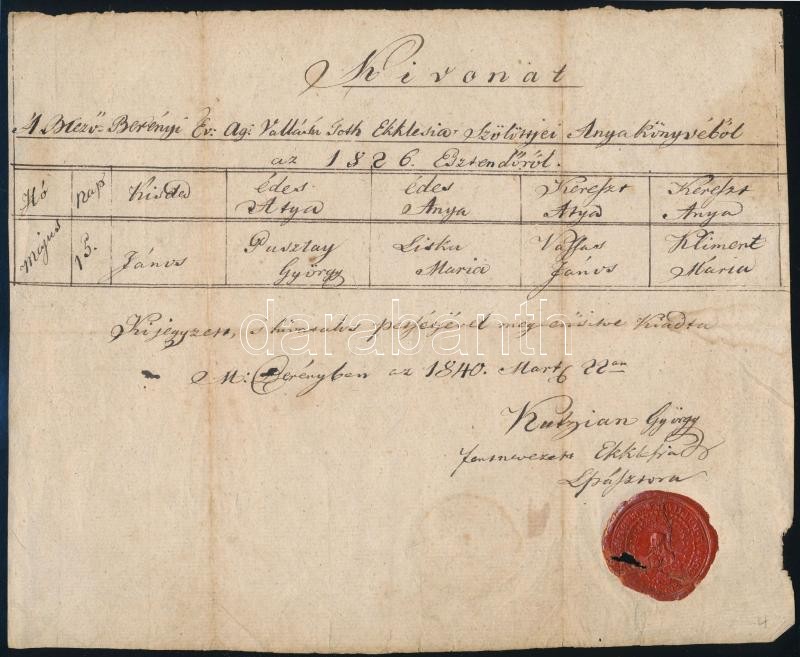 Kivonat
A Mező-Berényi Ev: Ag: Vallású Toth Ekklésia Szülöttjei Anyakönyvéből
az 1826. Esztendőről.
Hó nap Kisded édes Atya édes Anya Kereszt Atya Kereszt Anya
Május 15. János Pusztay György Liska Maria János Kliment Mária
Kijegyzett, s hivatalos petsétjével meg erősitve Kiadta
M: Berényben az 1840. Mart 22án
György
Ekklésia
Lpásztora
darabanth
4